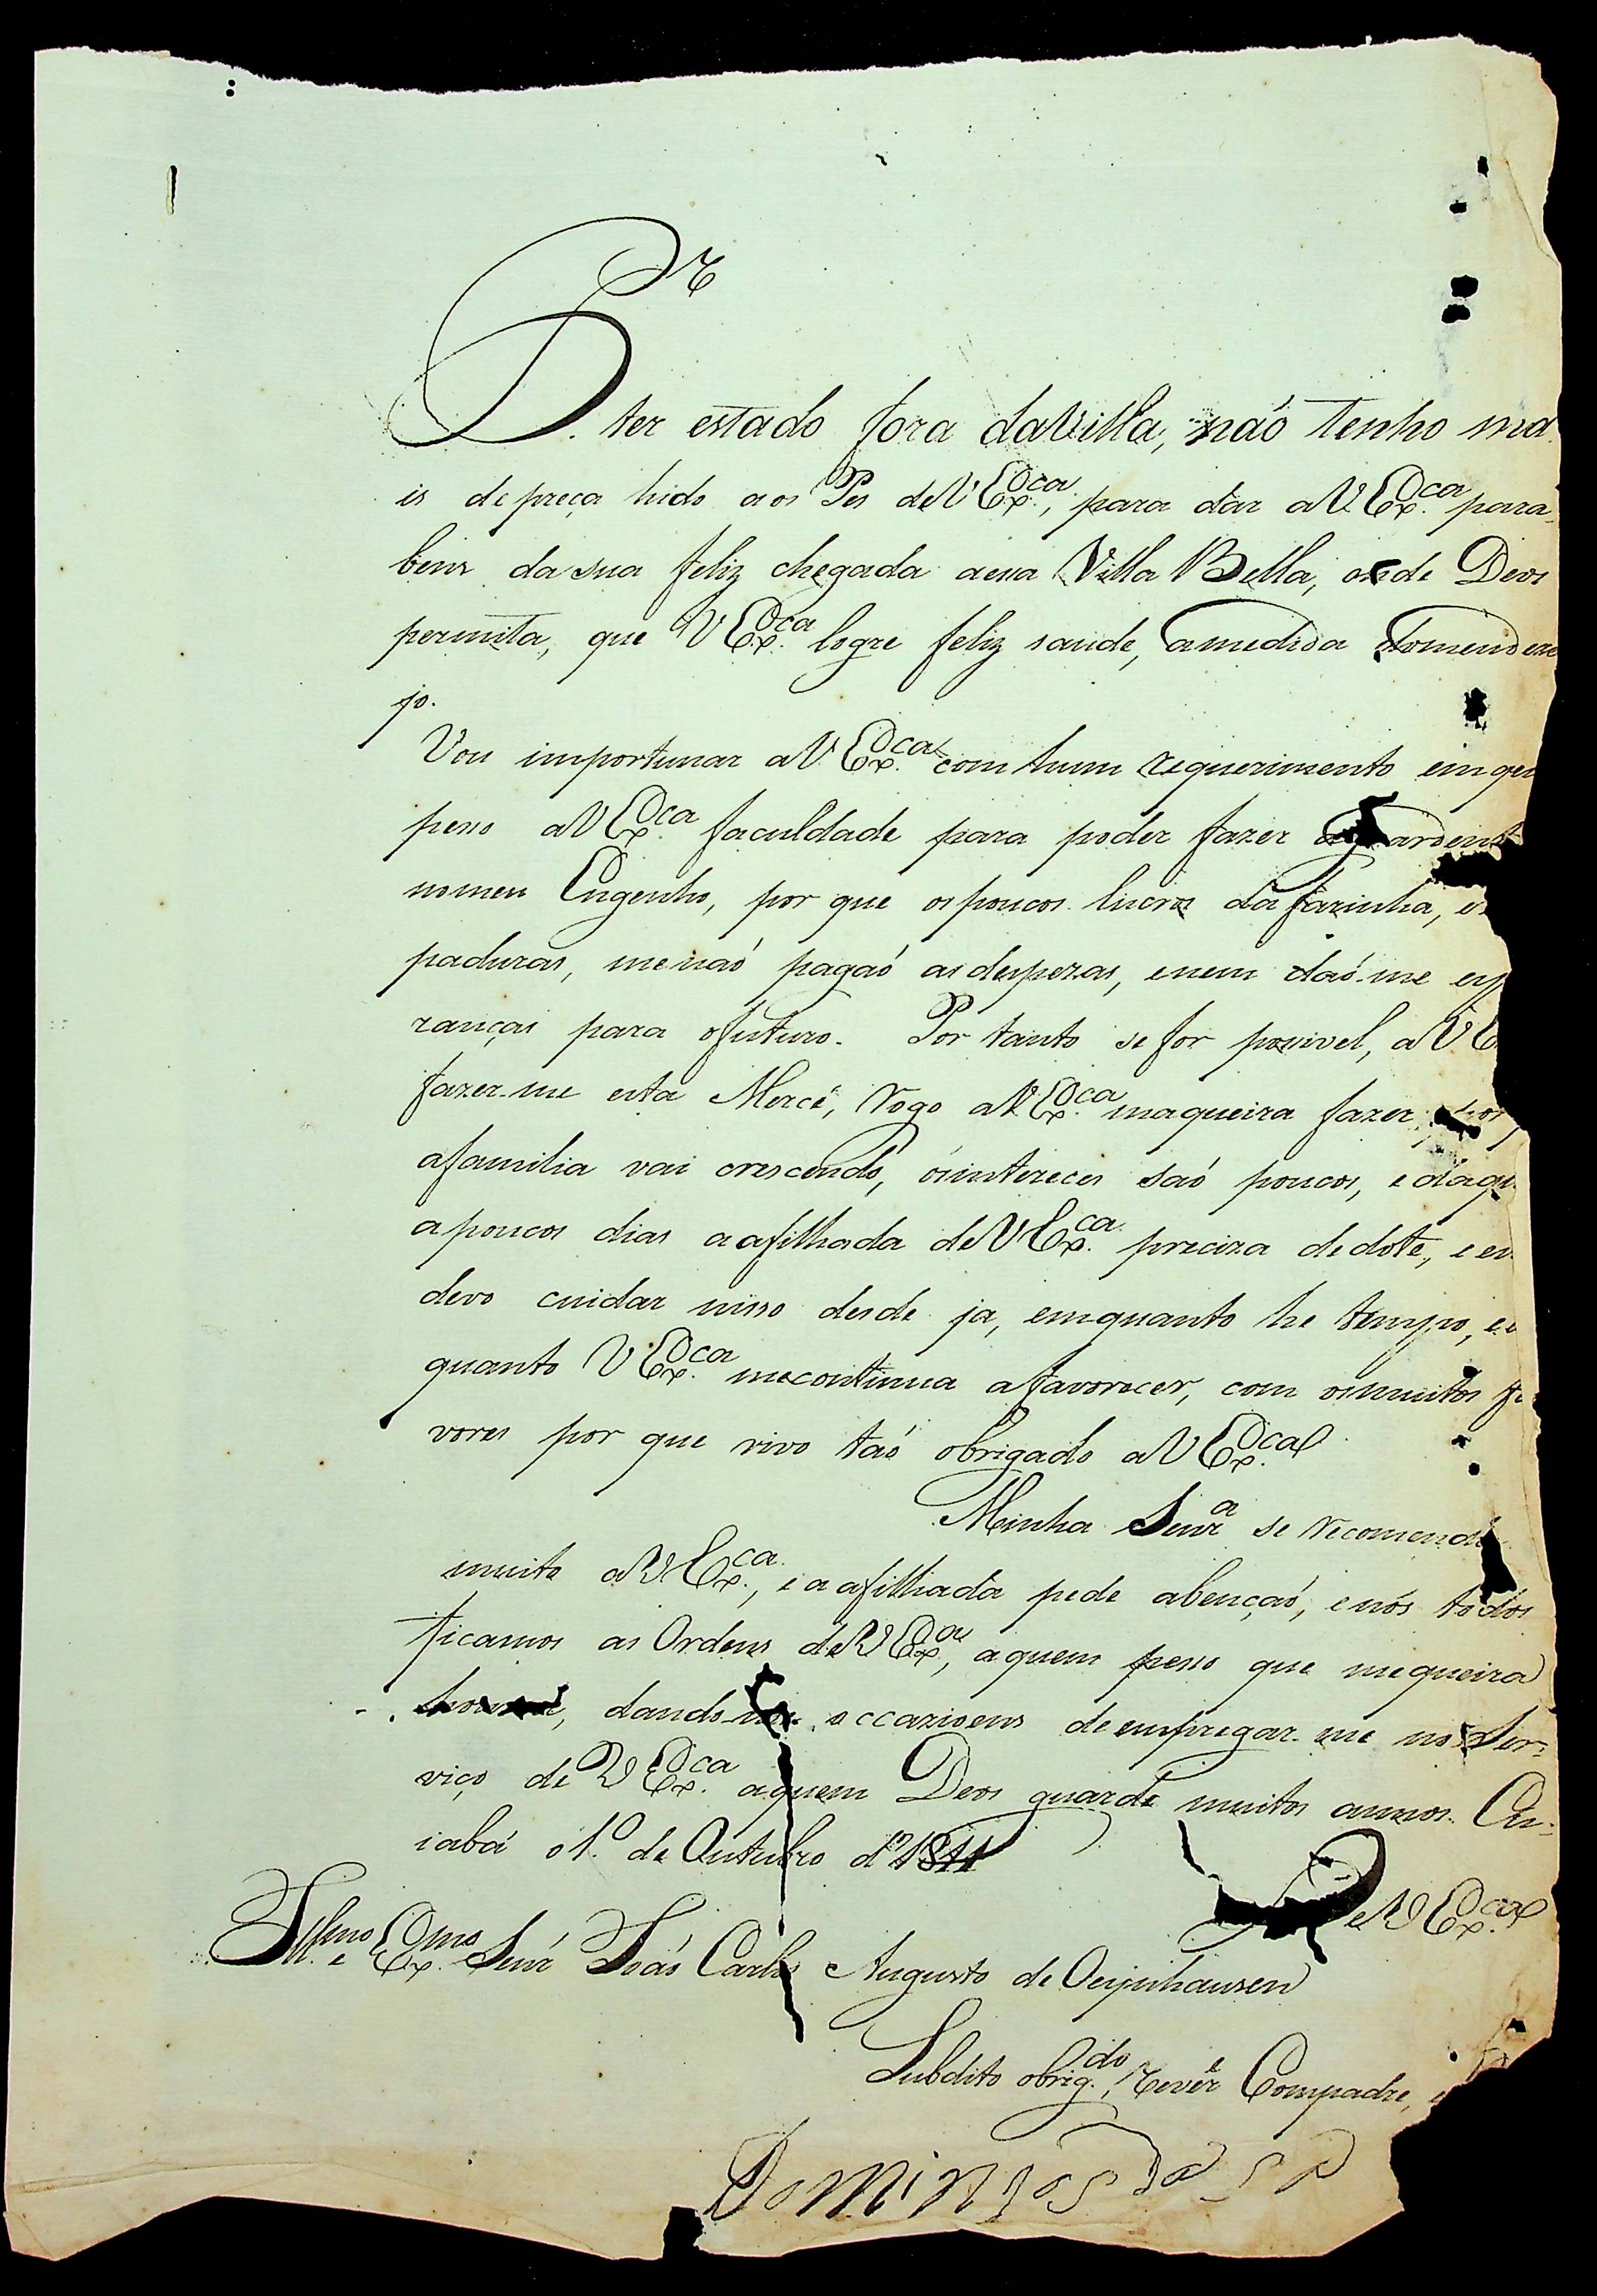 P.r ter estado fora daVilla, naó tenho ma
is depreça hido aos Pes deVEx.ca, para dar aVEx.ca para
bens da sua feliz chegada aessa Villa Bella, onde Deos
permita, que VEx.ca logre feliz saude, amedida domeu deze
jo.
Vou importunar aVEx.ca com hum requerimento emque
pesso aVEx.ca faculdade para poder fazer agoardent
nomeu Engenho, por que ospoucos lucros da farinha, e
paduras, menaó pagaó asdespezas, enem daó-me esp
ranças para ofuturo. Por tanto se for possivel, aVE
fazer-me esta Mercê, Rogo aVEx.ca maqueira fazer, por
afamilia vai crescendo, osintereces saó poucos, edaqu
apoucos dias aafilhada deVEx.ca preciza dedote, eeu
devo cuidar nisso desde ja, emquanto he tempo, ee
quanto VEx.ca mecontinua afavorecer, com osmuitos fa
vores por que vivo taó obrigado aVEx.ca
Minha Senr.a se Recomenda
muito aVEx.ca, eaafilhada pede abençaó, enós todos
ficamos as Ordens deVEx.a, aquem pesso que mequeira
dando occazioens deempregar-me no Ser-
viço de VEx.ca aquem Deos guarde muitos annos. Cu-
iabá o1.º de Outubro d'1811
DeVEx.ca
Ill.mo e Ex.mo Senr Joaó Carlos Augusto de Oeijnhausen
Subdito obrig.do, Rever.e Compadre, e
Domingos